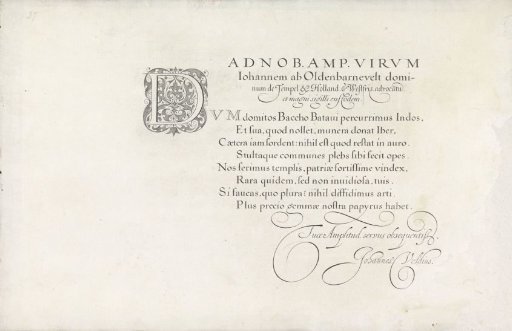 AD NOB. AMP. VIRVM
Iohannem ab Oldenbarnevelt domi-
num de Tempel &c Holland. & Westfris. advocatũ
et magni sigilli custodem.
DVM domitos Baccho Bataui percurrimus Indos,
Et sua, quod nollet, munera donat Iber,
Cætera iam sordent: nihil est quod restat in auro.
Stultaque communes plebs sibi fecit opes.
Nos ferimus templis, patriæ fortissime vindex,
Rara quidem, sed non inuidiosa, tuis.
Si faucas, quo plura? nihil diffidimus arti.
Plus precio gemmæ nostra papyrus habet.
Tuæ Amplitud. seruus obsequentiss.
Johannes Veldius.